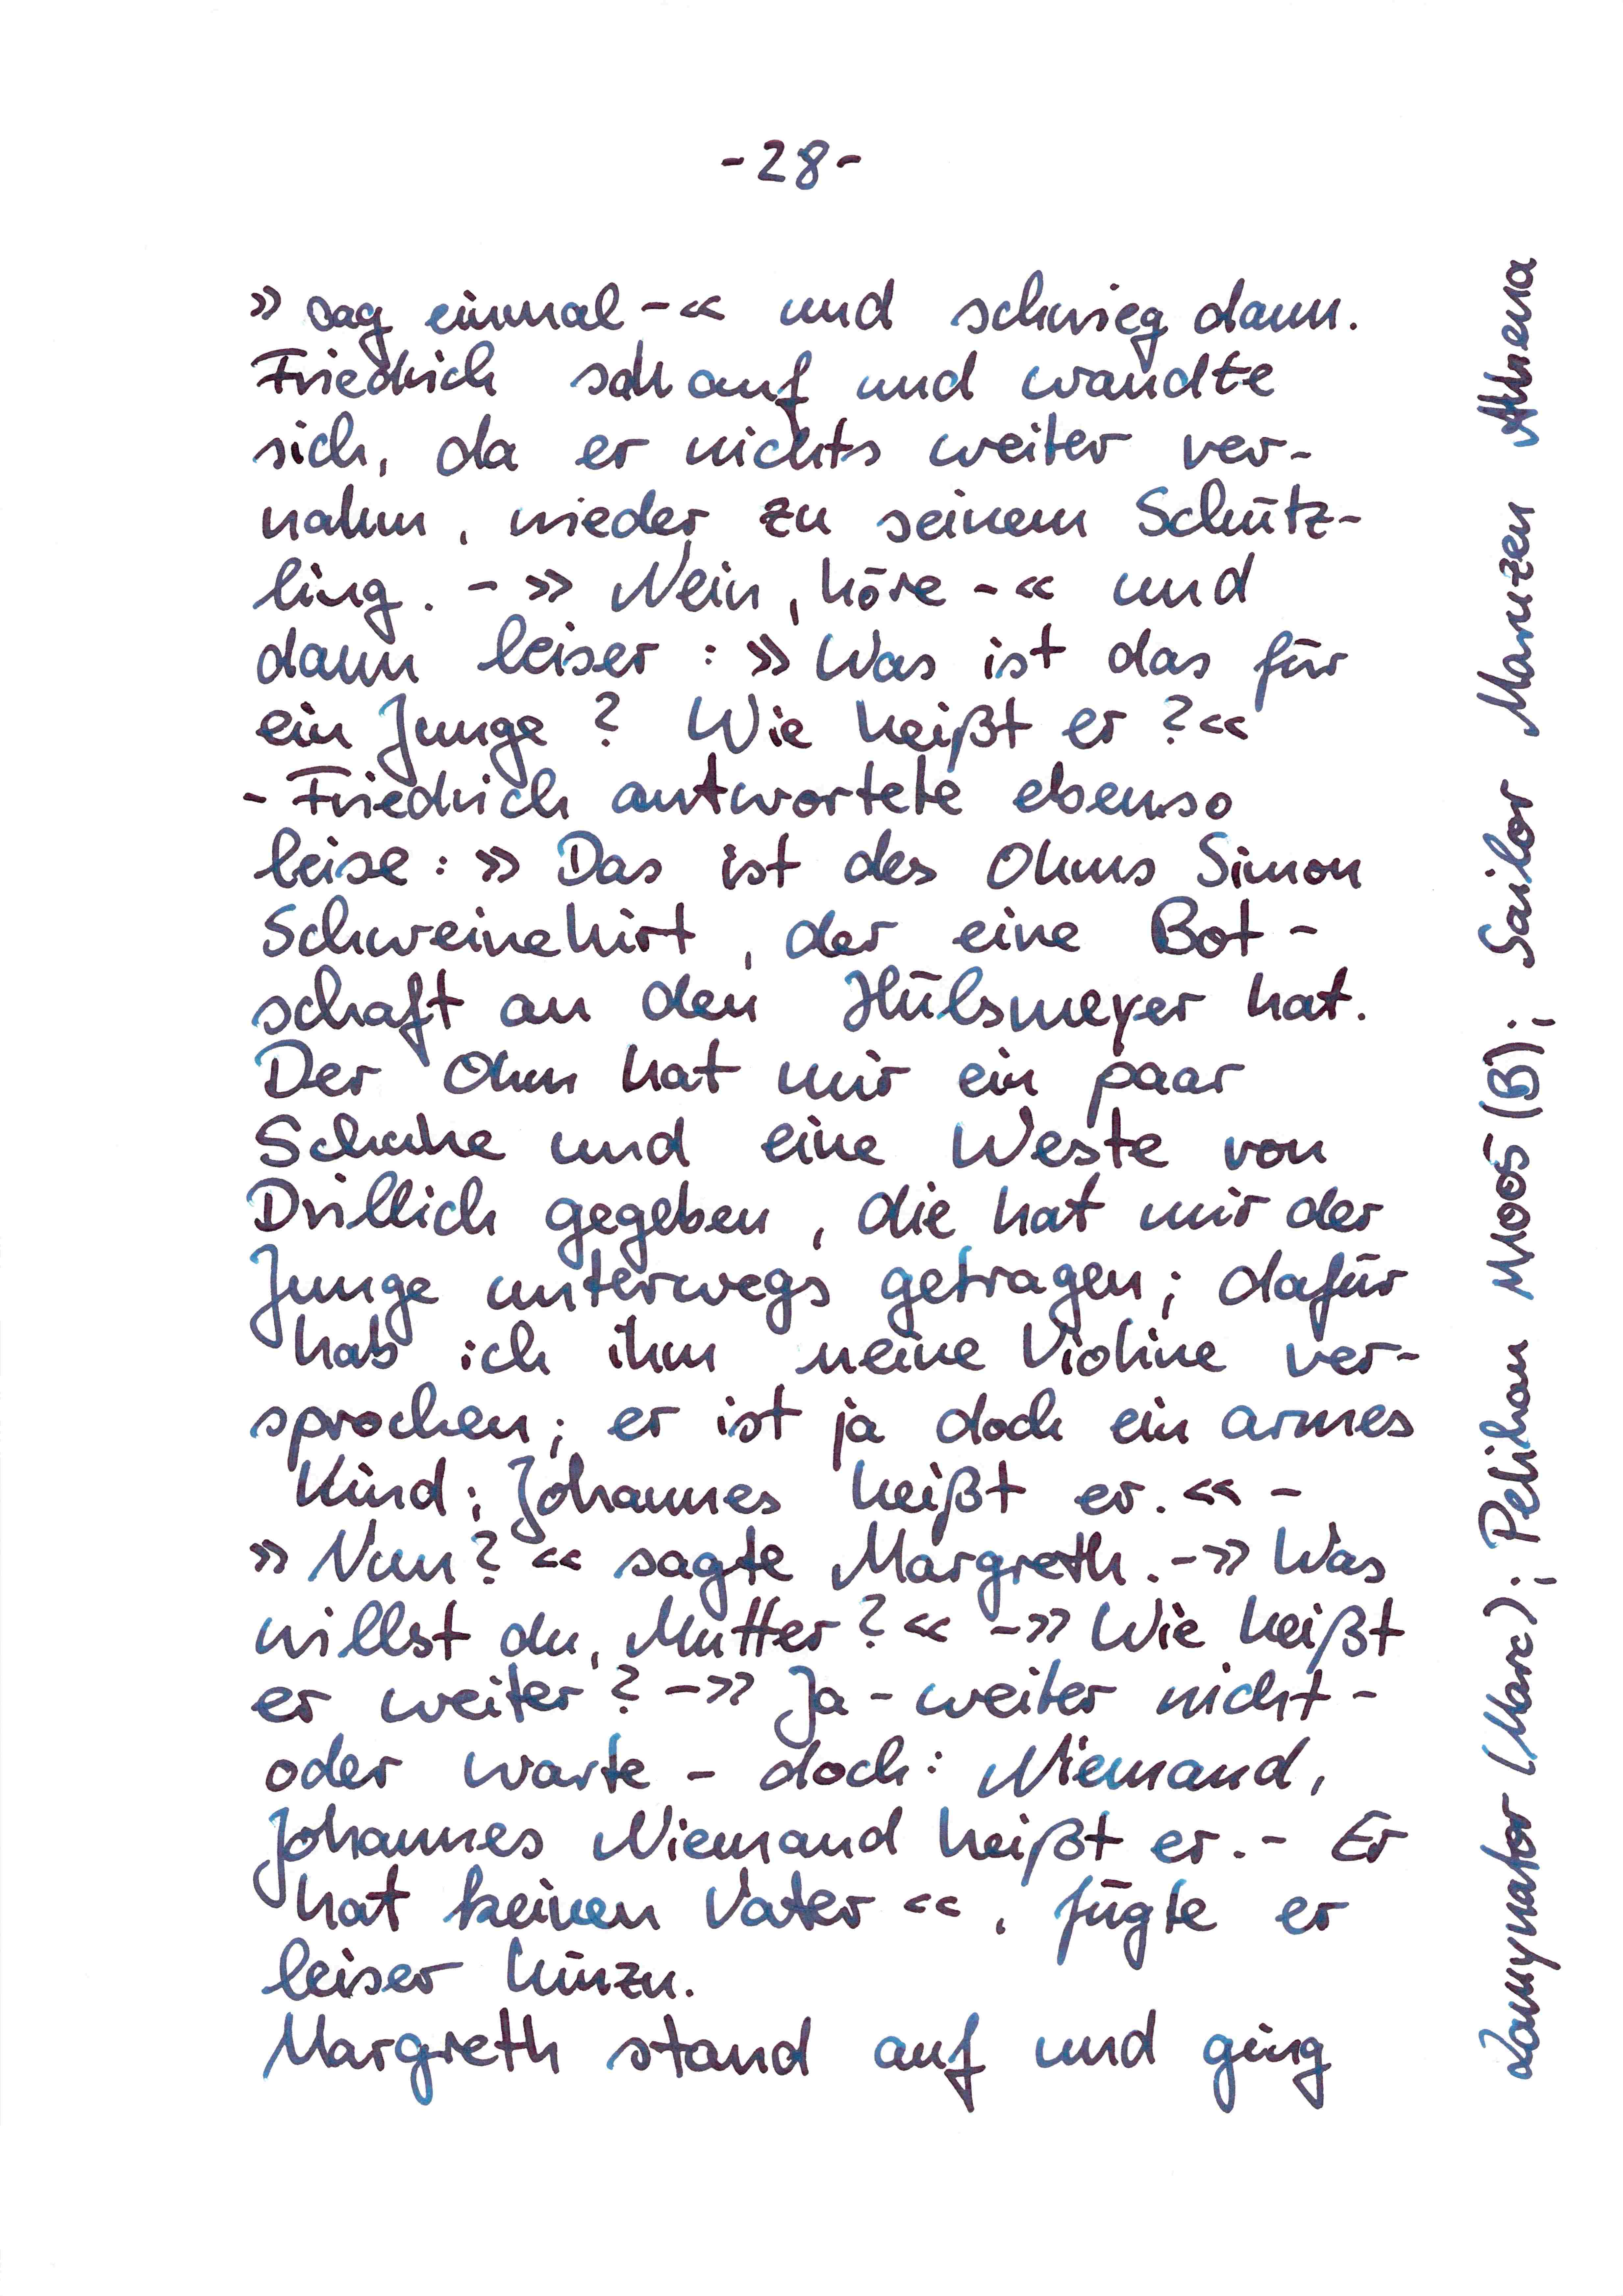 -28-
» sag einmal -« und schwieg dann.
Friedrich sah auf und wandte
sich, da er nichts weiter ver-
nahm, wieder zu seinem Schütz-
ling. - » Nein, höre -« und
dann leiser: » Was ist das für
ein Junge? Wie heißt er?«
- Friedrich antwortete ebenso
leise: » Das ist des Ohms Simon
Schweinehirt, der eine Bot-
schaft an den Hülsmeyer hat.
Der Ohm hat mir ein paar
Schuhe und eine Weste von
Drillich gegeben, die hat mir der
Junge unterwegs getragen; dafür
hab ich ihm meine Violine ver-
sprochen; er ist ja doch ein armes
Kind; Johannes heißt er.« -
» Nun? « sagte Margreth. -» Was
willst du, Mutter? « -» Wie heißt
er weiter? -» Ja - weiter nicht -
oder warte - doch: Niemand,
Johannes Niemand heißt er. - Er
hat keinen Vater «, fügte er
leiser hinzu.
Margreth stand auf und ging
Lamynator (Marc); Pelikan M805 (B); Sailor Manuzen Athena